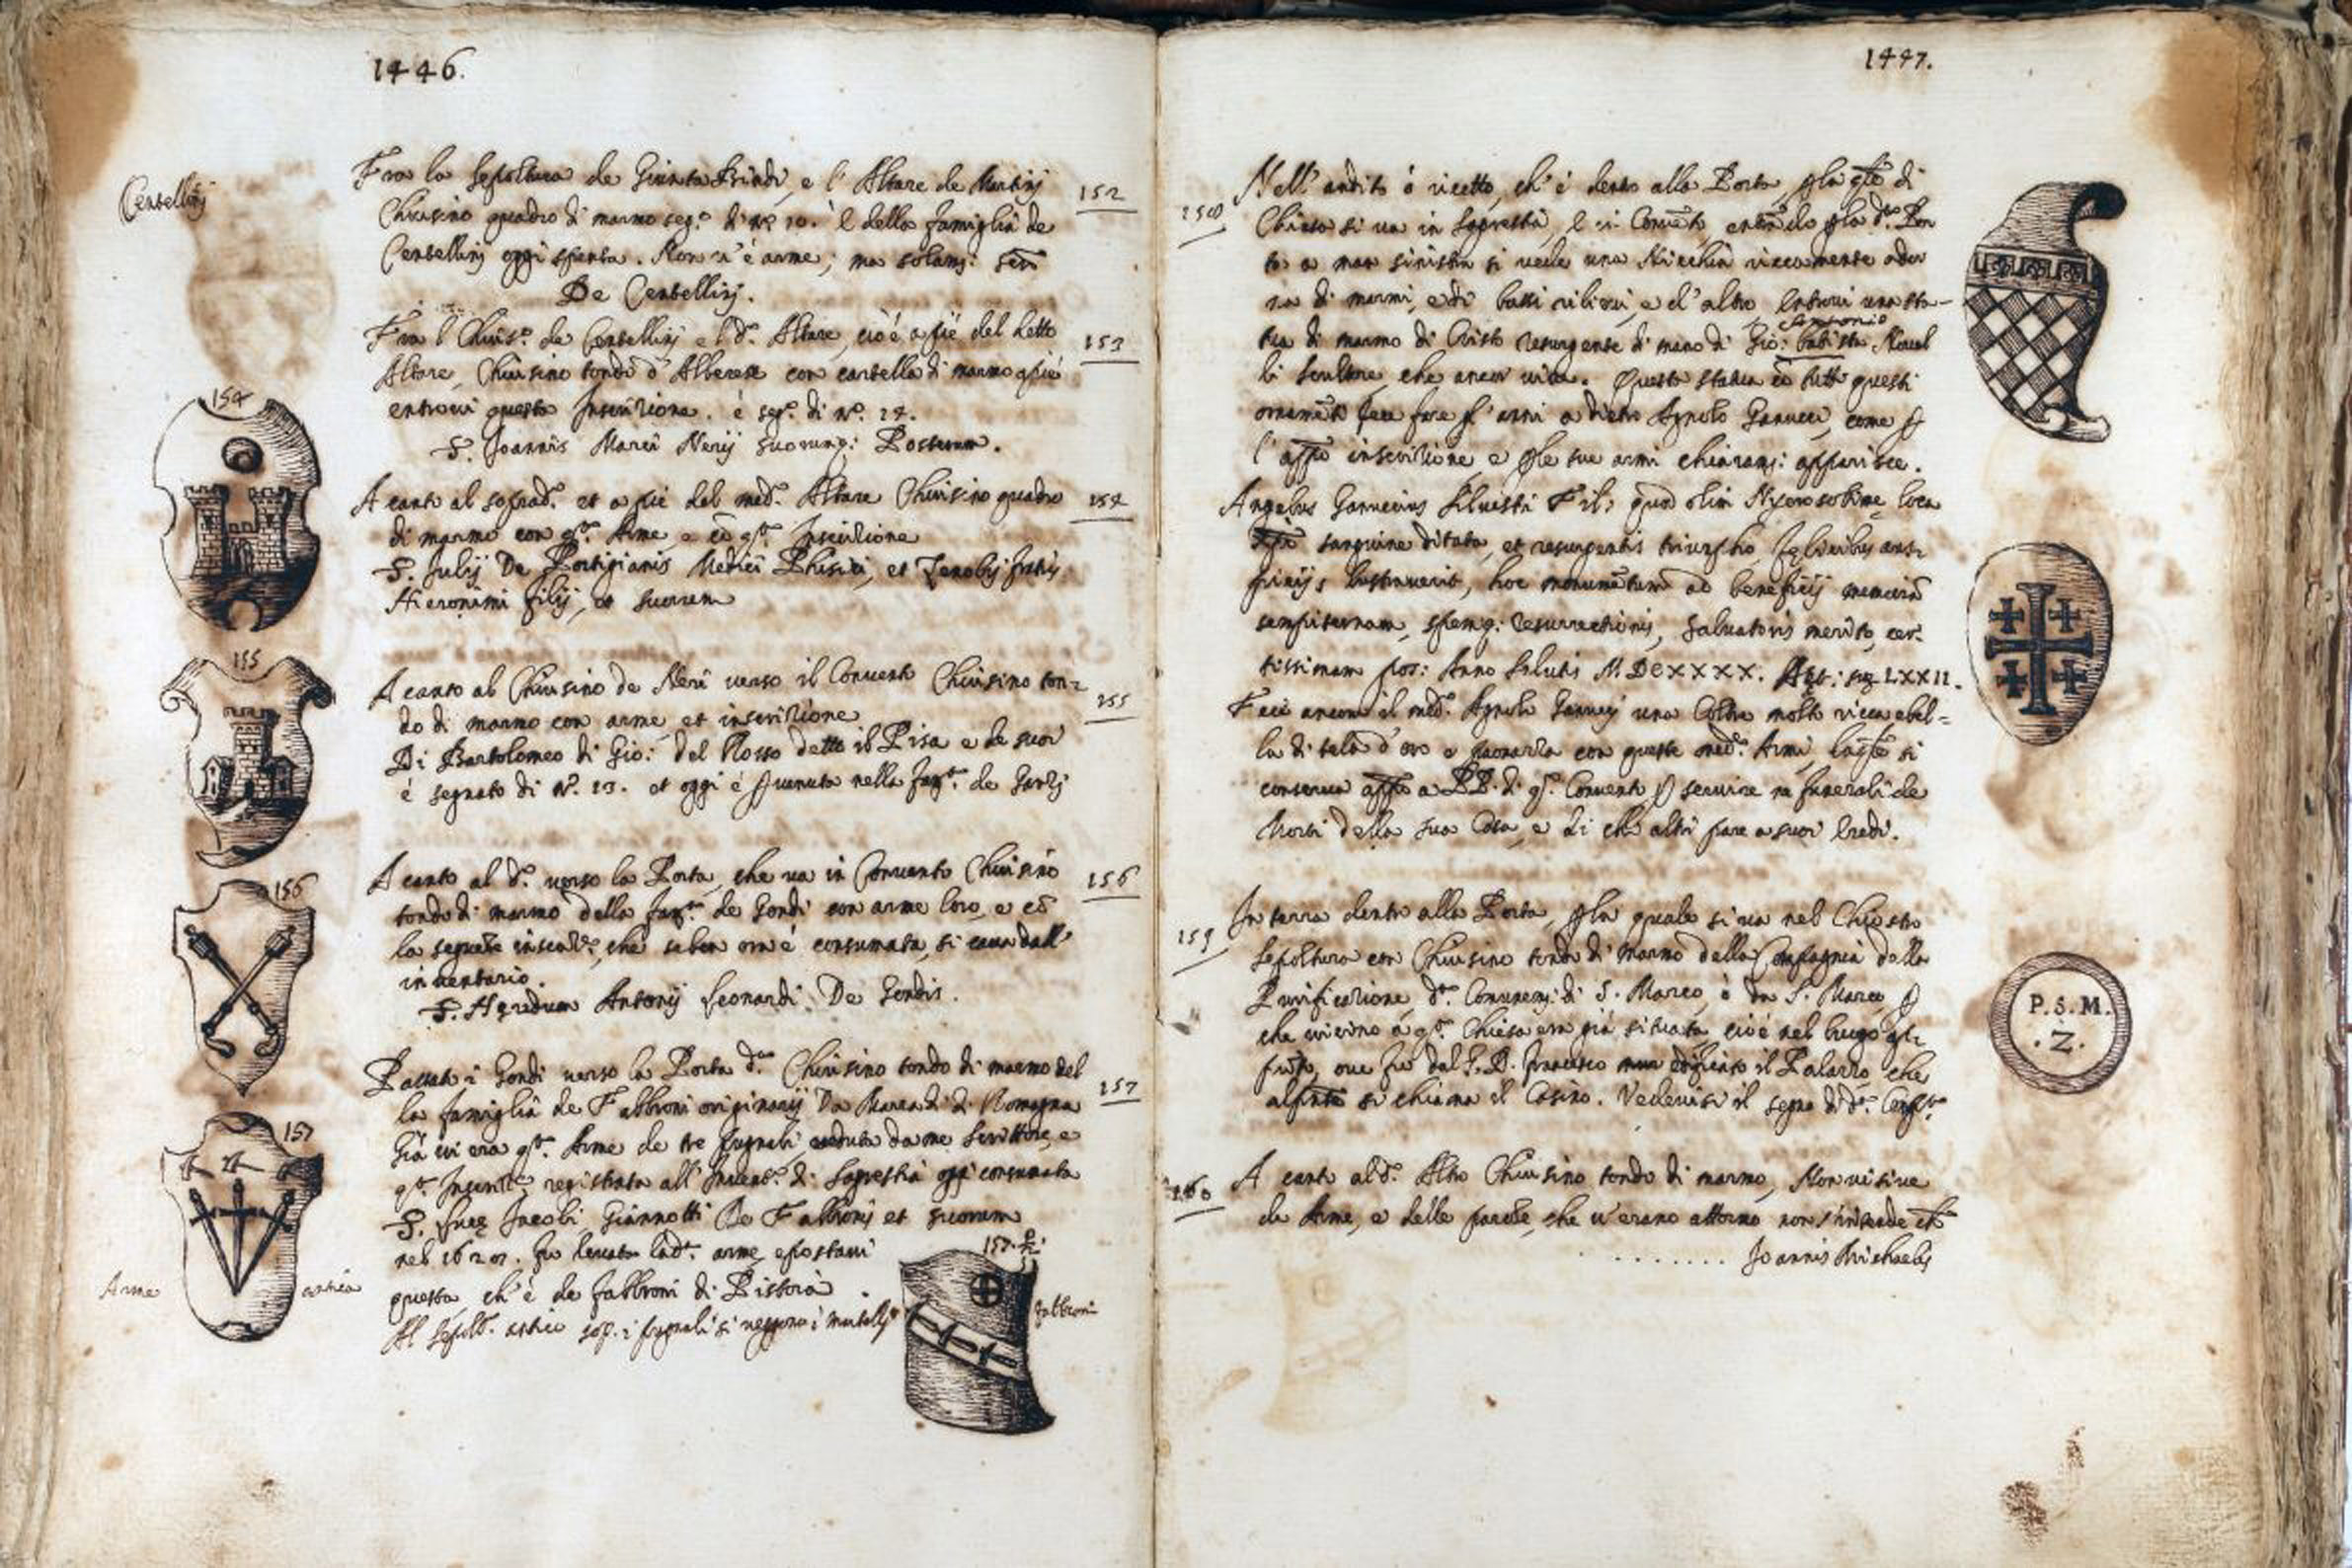 1446.
Centellinj
Fra la sepoltura de Giunta Bindi, e l'Altare de Martinj
Chiusino quadro di marmo seg.º di nº 10. è della famiglia de
Centellinj oggi spenta. Non v'è arme; ma solamj:
De Centellinj.
152
Fra l Chius.º de Centellinj e l d.º Altare, cioè a piè del detto
Altare, Chiusino tondo d'Alberese con cartella di marmo
entrovi questa Inscrizione. è seg.º di nº. 14.
S. Joannis Marci Nerij suorumq: Posterum.
153
A canto al soprad.º et a piè del med.º Altare Chiusino quadro
di marmo con q.ta Arme, e cō q.ta Inscrizione
S. Julij De Portigianis Medici Phisici, et Zenobij fratris
Hieronimi filij, et suorum
154
154
A canto al Chiusino de Neri verso il Convento Chiusino ton=
do di marmo con arme, et inscrizione
Di Bartolomeo di Gio: del Rosso detto il Pisa e de suoi
è segnato di Nº. 13. et oggi è pvenuta nella fam.ª de
155
155
A canto al d.º verso la Porta, che va in Convento Chiusino
tondo di marmo della fam.ª de Gondi con arme loro, e cō
la seguēte inscriz.e, che seben ora è consumata, si cava dall'
inventario.
S. Hæredum Antonij Leonardi De Gondis.
156
156
Passati i Gondi verso la Porta d.ª Chiusino tondo di marmo del
la famiglia de Fabbroni originarij da Maradi di Romagna
Già vi era q.ta Arme de tre pugnali, veduta da me scrittore, e
q.ta Inscriz.e registrata all'Invent.º di Sagrestia oggi consumata
S. Lucę Jacobi Giannotti De Fabbronj et suorum
nel 162 fu levata la d.ª arme, e postavi
questa, ch'è de fabbroni di Pistoia.
Al sepolt. antico sop. i pugnali si veggono i martellj
157
157
Arme antica
157.
Fabbroni
1447.
Nell'andito ò ricetto, ch'è dento alla Porta, p la qle di
Chiesa si va in Sagrestia, e in Convēto, entrādo p la d.ª Por
ta a man sinistra si vede una Nicchia riccamente ador
na di marmi, e di bassi rilievi, e d'altro. Entrovi una sta=
tua di marmo di Cristo resurgente di mano di Gio: batista
Antonio
Novel
li scultore, che ancor vive. Questa statua cō tutti questi
ornamēti fece fare p l'anni a dietro Agnolo Ganucci, come p
l' inscrizione e p le sue armi chiaramj: apparisce.
Angelus Ganuccius Silvestri Fil: quod olim Hyerosolimę loca
sanguine ditata, et resurgentis triumpho, felicibus aus=
picijs lustraverit, hoc monumētum ad beneficij memoriā
sempiternam, spemq: resurrectionis, Salvatoris merito, cer=
tissimam pos: Anno Salutis M.DCXXXX. Æt: suę LXXII.
Fece ancora il med.º Agnolo Ganucci una Coltre molto ricca e bel=
la di tela d'oro e paonazza con queste med.e Armi, si
conserva a PP. di q.to Convento p servire ne funerali de
Morti della sua Casa, e di chi altri pare a suoi Eredi.
158
In terra dento alla Porta, p la quale si va nel Chiostro
sepoltura con Chiusino tondo di marmo della Compagnia della
Purificazione, d.ª Comunemj: di S. Marco, ò da S. Marco, p
che vicino a q.ta Chiesa era già situata, cioè nel luogo
ove fu dal G.D. Francesco edificato il Palazzo che
si chiama il Casino. Vedevisi il segno di d.ª
159
P.S.M.
.Z.
A canto al d.º Altro Chiusino tondo di marmo, Non vi si ve
de Arme, e delle parole, che v'erano attorno non s'intende
. . . . . . . Joannis Michaelis
160